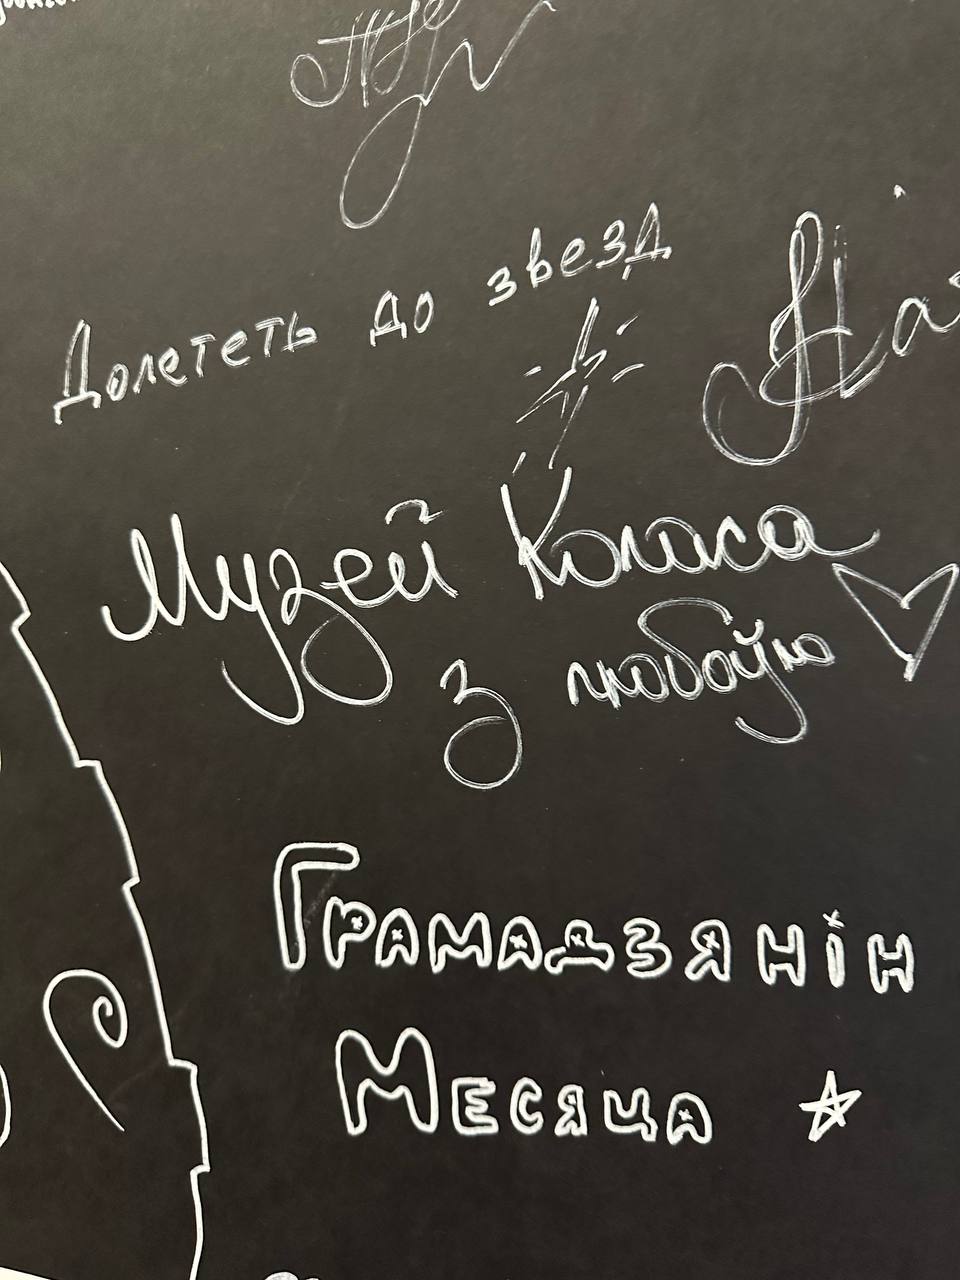 Долететь до звезд
Музей Коласа
з любоўю
Грамадзянін
Месяца